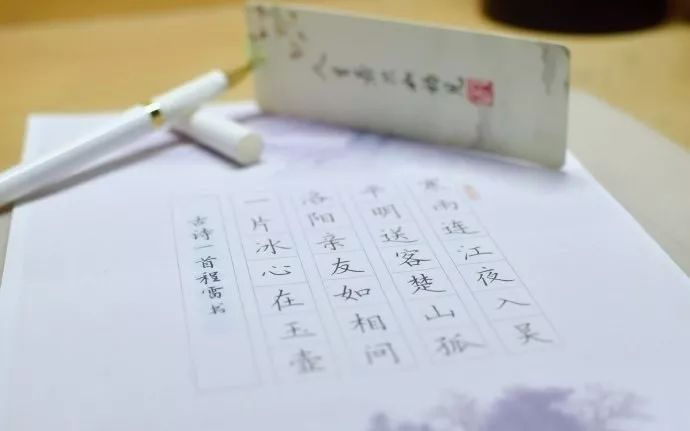 人生若只如初见
寒雨连江夜入吴
平明送客楚山孤
洛阳亲友如相问
一片冰心在玉壶
古诗一首程雷书